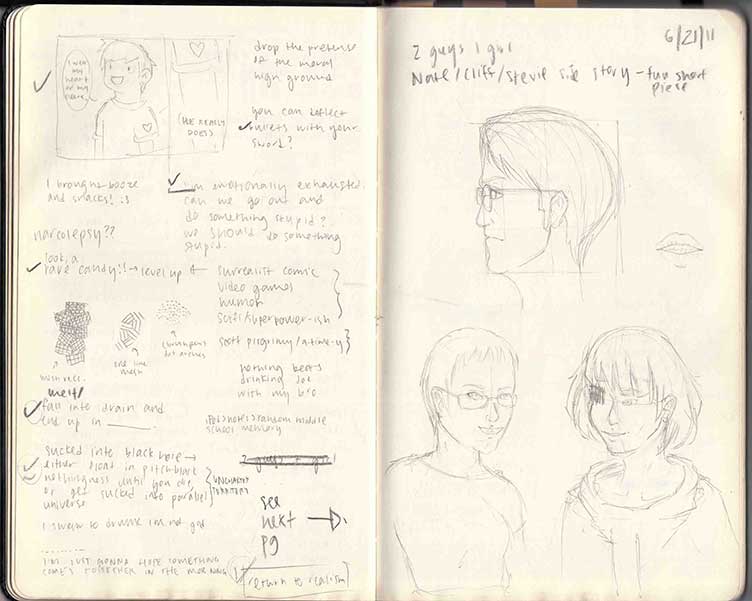 I wear
my
heart
on my
sleeve.
(HE REALLY
DOES)
drop the pretense
of the moral
high ground
you can deflect
bullets with your
sword?
I brought booze
and snacks! :3
I'm emotionally exhausted.
can we go out and
do something stupid?
we should do something
stupid.
narcolepsy??
look, a
rare candy!! → level up
surrealist comic
video games
humor
scifi/superpower-ish
scott pilgrimy/
nothing beats
drinking
with my bro
melt/
fall into drain and
end up in ______.
random middle
school memory
sucked into black hole →
either float in pitch black
nothingness until you die,
or get sucked into parallel
universe
UNCHARTED
TERRITORY
2 guys 1 girl
see
next
pg
I swear to drunk im not god
I'M JUST GONNA HOPE SOMETHING
COMES TOGETHER IN THE MORNING
return to realism
6/21/11
2 guys 1 girl
Nate/Cliff/Stevie side story - fun short
piece